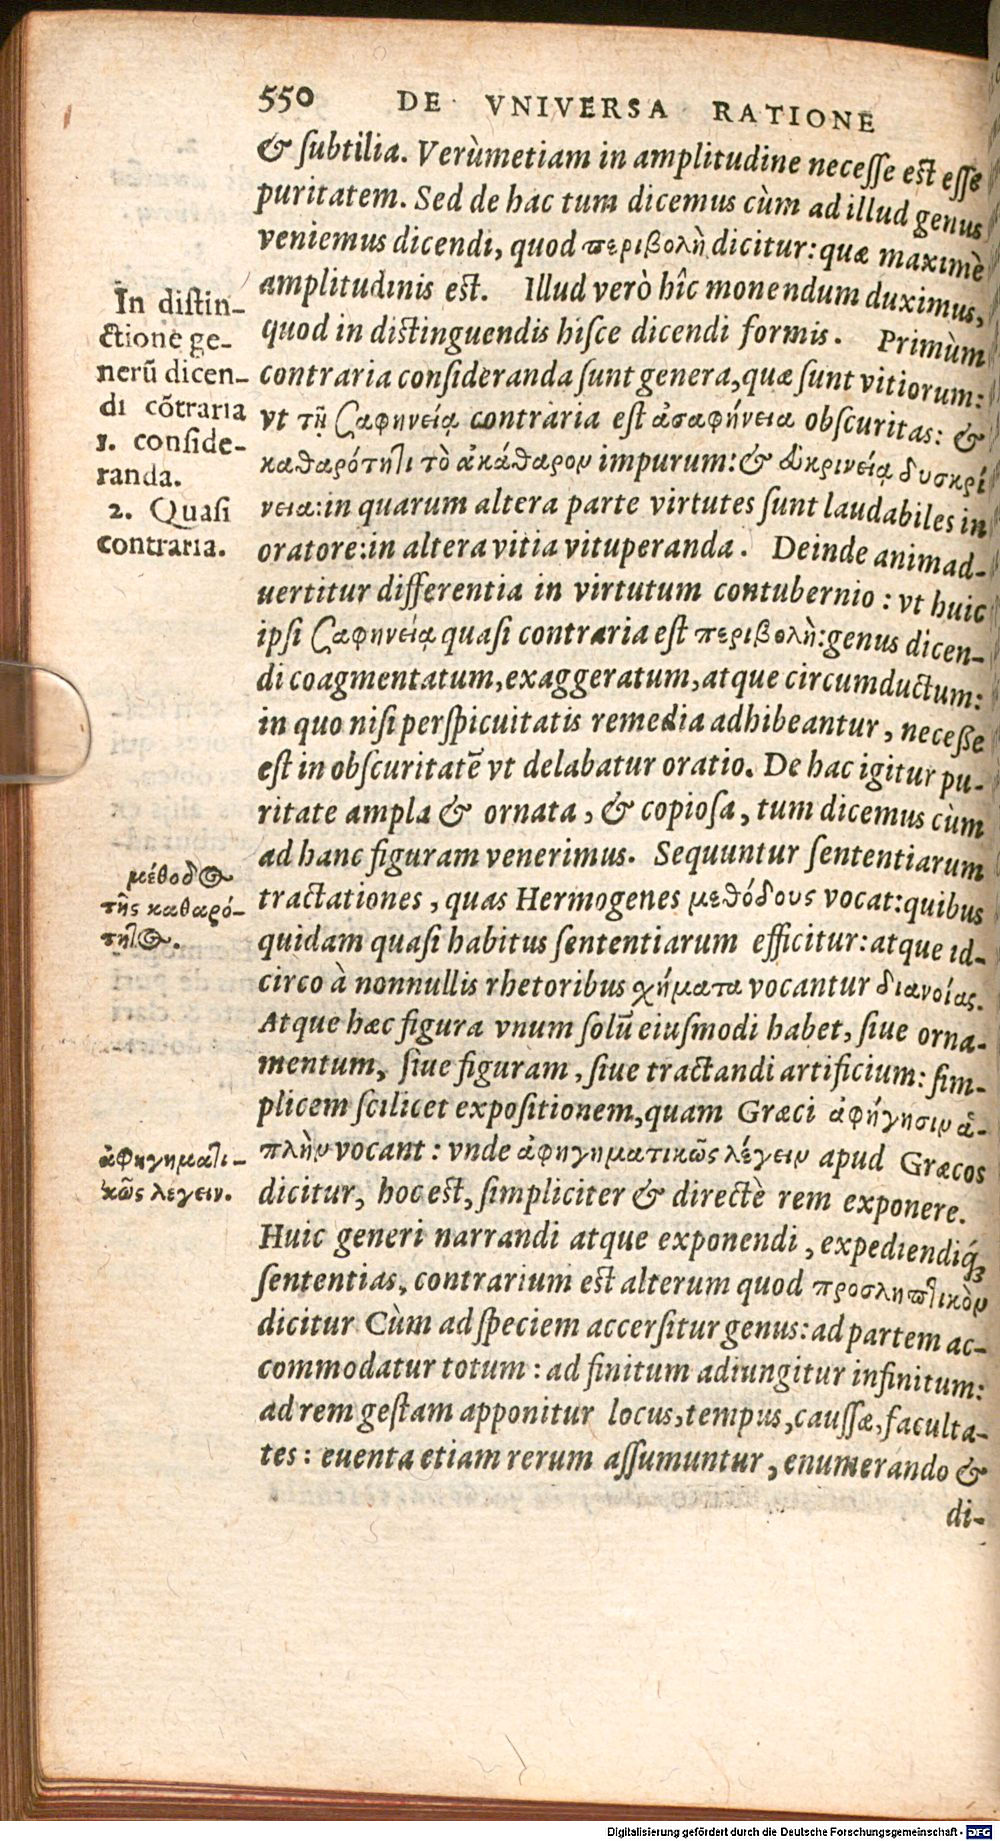 550 DE VNIVERSA RATIONE
& ſubtilia. Verùmetiam in amplitudine neceſſe eſt eſſe
puritatem. Sed de hac tum dicemus cùm ad illud genus
veniemus dicendi, quod περιβολὴ dicitur: quæ maximè
amplitudinis eſt. Illud verò hîc monendum duximus,
quod in diſtinguendis hiſce dicendi formis. Primùm
contraria conſideranda ſunt genera, quæ ſunt vitiorum:
vt τῇ σαφηνείᾳ contraria eſt ἀσαφήνεια obſcuritas: &
καθαρότητι τὸ ἀκάθαρον impurum: & εὐκρινείᾳ δυσκρί
νεια: in quarum altera parte virtutes ſunt laudabiles in
oratore: in altera vitia vituperanda. Deinde animad-
uertitur differentia in virtutum contubernio: vt huic
ipſi σαφηνείᾳ quaſi contraria eſt περιβολὴ: genus dicen-
di coagmentatum, exaggeratum, atque circumductum:
in quo niſi perſpicuitatis remedia adhibeantur, neceſſe
eſt in obſcuritatẽ vt delabatur oratio. De hac igitur pu-
ritate ampla & ornata, & copioſa, tum dicemus cùm
ad hanc figuram venerimus. Sequuntur ſententiarum
tractationes, quas Hermogenes μεθόδους vocat: quibus
quidam quaſi habitus ſententiarum efficitur: atque id-
circo à nonnullis rhetoribus σχήματα vocantur διανοίας.
Atque hæc figura vnum ſolũ eiuſmodi habet, ſiue orna-
mentum, ſiue figuram, ſiue tractandi artificium: ſim-
plicem ſcilicet expoſitionem, quam Græci ἀφήγησιν ἁ-
πλὴν vocant: vnde ἀφηγηματικῶς λέγειν apud Græcos
dicitur, hoc eſt, ſimpliciter & directè rem exponere.
Huic generi narrandi atque exponendi, expediendiq́;
ſententias, contrarium eſt alterum quod προσληπτικὸν
dicitur Cùm ad ſpeciem accerſitur genus: ad partem ac-
commodatur totum: ad finitum adiungitur infinitum:
ad rem geſtam apponitur locus, tempus, cauſſæ, faculta-
tes: euenta etiam rerum aſſumuntur, enumerando &
di-
In diſtin-
ctione ge-
nerũ dicen-
di cõtraria
1. conſide-
randa.
2. Quaſi
contraria.
μέθοδος
τῆς καθαρό-
τητος.
ἀφηγηματι-
κῶς λέγειν.
Digitalisierung gefördert durch die Deutsche Forschungsgemeinschaft - DFG